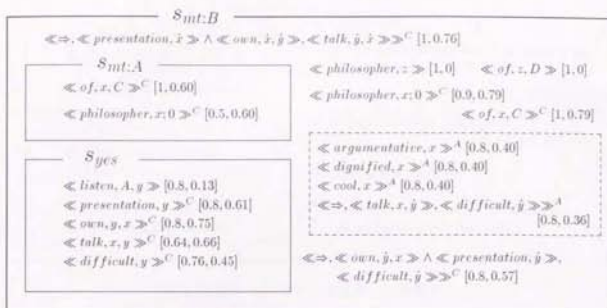 S_mt:B
≪⇒, ≪ presentation, ẋ ≫ ∧ ≪ own, ẋ, ẏ ≫, ≪ talk, ẏ, ẋ ≫≫^C [1, 0.76]
S_mt:A
≪ of, x, C ≫^C [1, 0.60]
≪ philosopher, x; 0 ≫^C [0.5, 0.60]
≪ philosopher, z ≫ [1, 0] ≪ of, z, D ≫ [1, 0]
≪ philosopher, x; 0 ≫^C [0.9, 0.79]
≪ of, x, C ≫^C [1, 0.79]
S_yes
≪ listen, A, y ≫ [0.8, 0.13]
≪ presentation, y ≫^C [0.8, 0.61]
≪ own, y, x ≫^C [0.8, 0.75]
≪ talk, x, y ≫^C [0.64, 0.66]
≪ difficult, y ≫^C [0.76, 0.45]
≪ argumentative, x ≫^A [0.8, 0.40]
≪ dignified, x ≫^A [0.8, 0.40]
≪ cool, x ≫^A [0.8, 0.40]
≪⇒, ≪ talk, x, ẏ ≫, ≪ difficult, ẏ ≫≫^A
[0.8, 0.36]
≪⇒, ≪ own, ẏ, x ≫ ∧ ≪ presentation, ẏ ≫,
≪ difficult, ẏ ≫≫^C [0.8, 0.57]